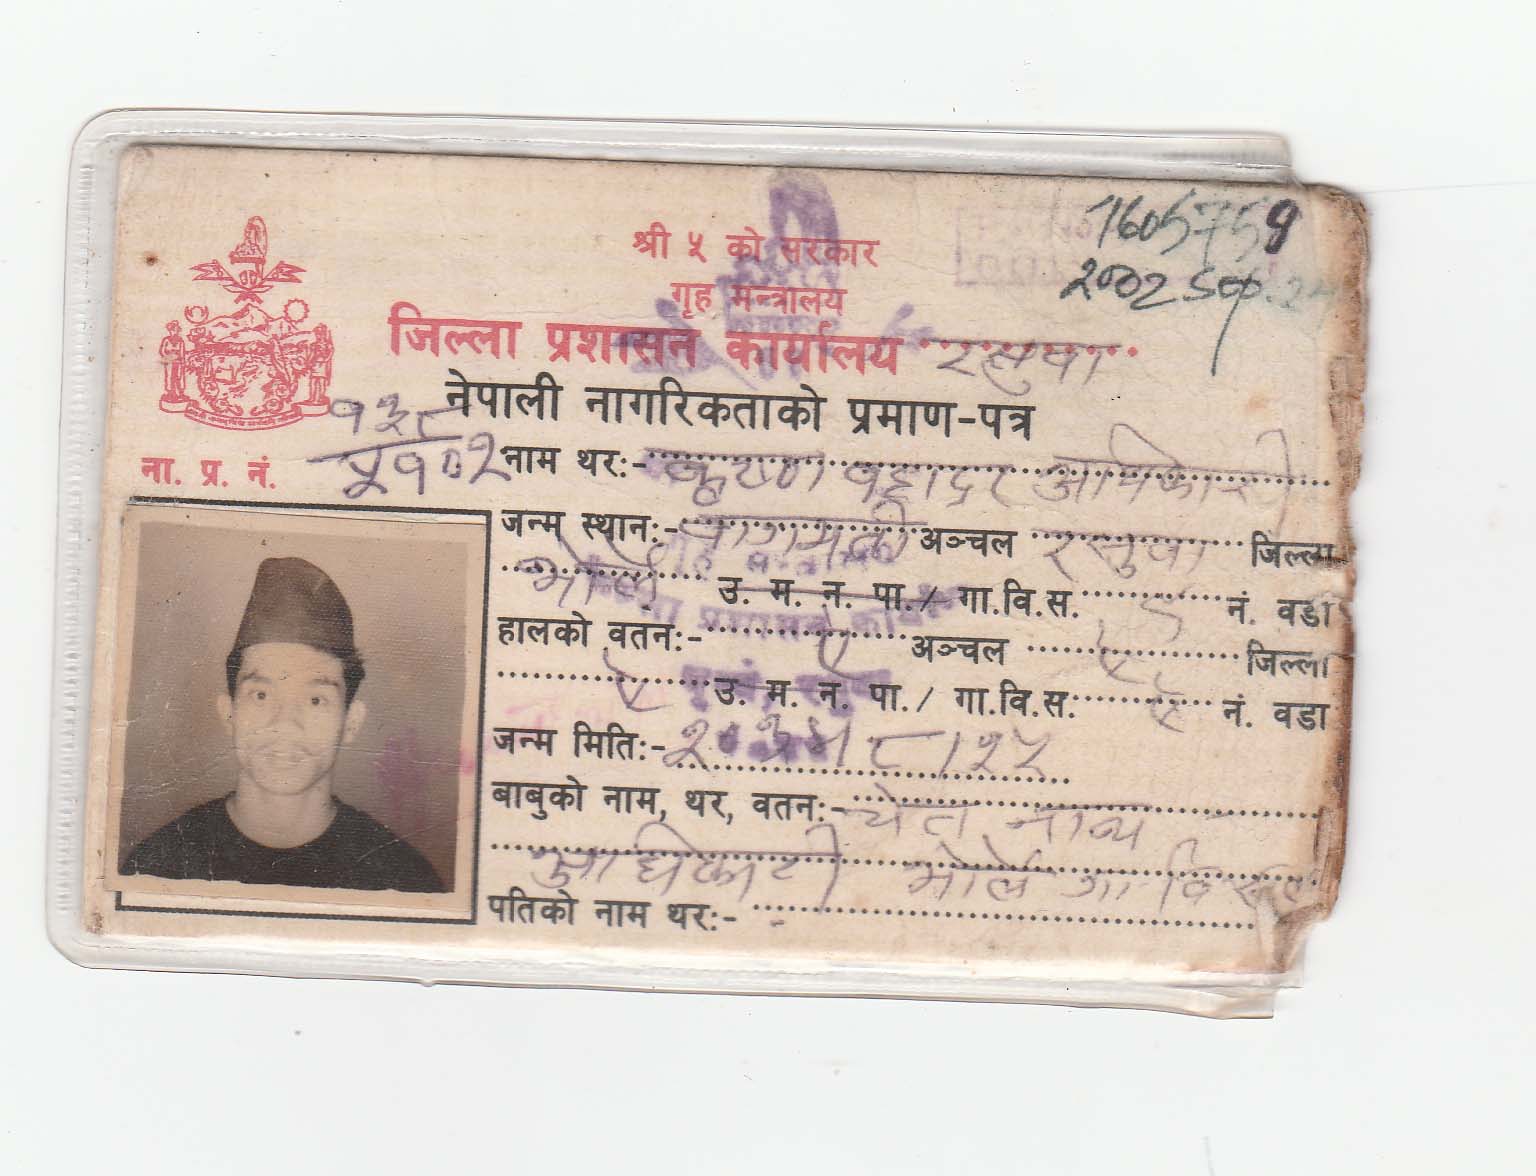 51605759
2002 Sep. 24
श्री ५ को सरकार
गृह मन्त्रालय
जिल्ला प्रशासन कार्यालय रसुवा
नेपाली नागरिकताको प्रमाण-पत्र
ना. प्र. नं.
नाम थर:- कृष्ण बहादुर अधिकारी
जन्म स्थान:- बागमती अञ्चल रसुवा जिल्ला
भोर्ले उ. म. न. पा. / गा.वि.स. नं. वडा
हालको वतन:- ऐ अञ्चल ऐ जिल्ला
ऐ उ. म. न. पा. / गा.वि.स. ऐ नं. वडा
जन्म मिति:- २०३४।८।२५
बाबुको नाम, थर, वतन:-
अधिकारी भोर्ले गा वि स
पतिको नाम थर:- -